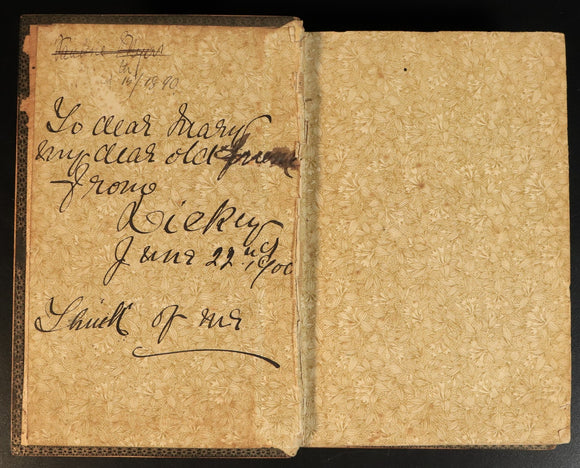 To dear Mary
my dear old friend
from
Dickey
June 22nd 1900
Think of me